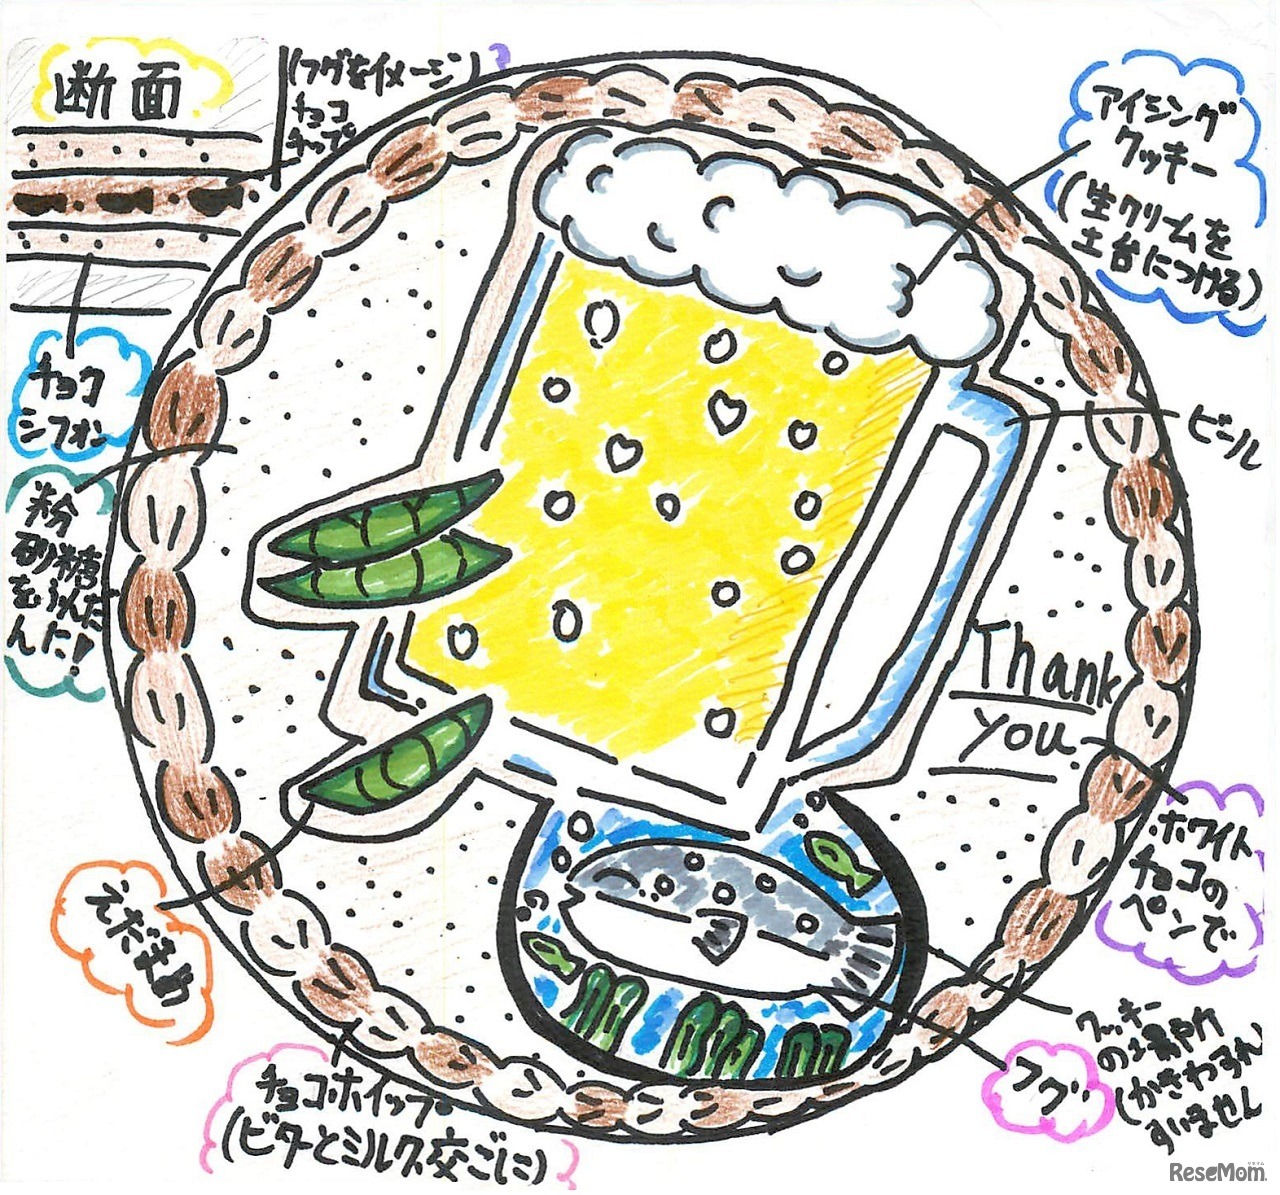 断面
(フグをイメージ)
チョコ
チップ
アイシング
クッキー
(生クリームを
土台につける)
チョコ
シフォン
ビール
粉
砂糖
をふんだ
んに!
Thank
you.
ホワイト
チョコの
ペンで
えだまめ
クッキー
フグ
すいません
チョコホイップ
(ビターとミルク交ごに)
ReseMom
リセマム